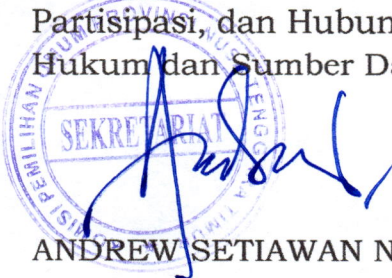 Partisipasi, dan Hubun
Hukum dan Sumber Da
SEKRETARIAT
ANDREW SETIAWAN N